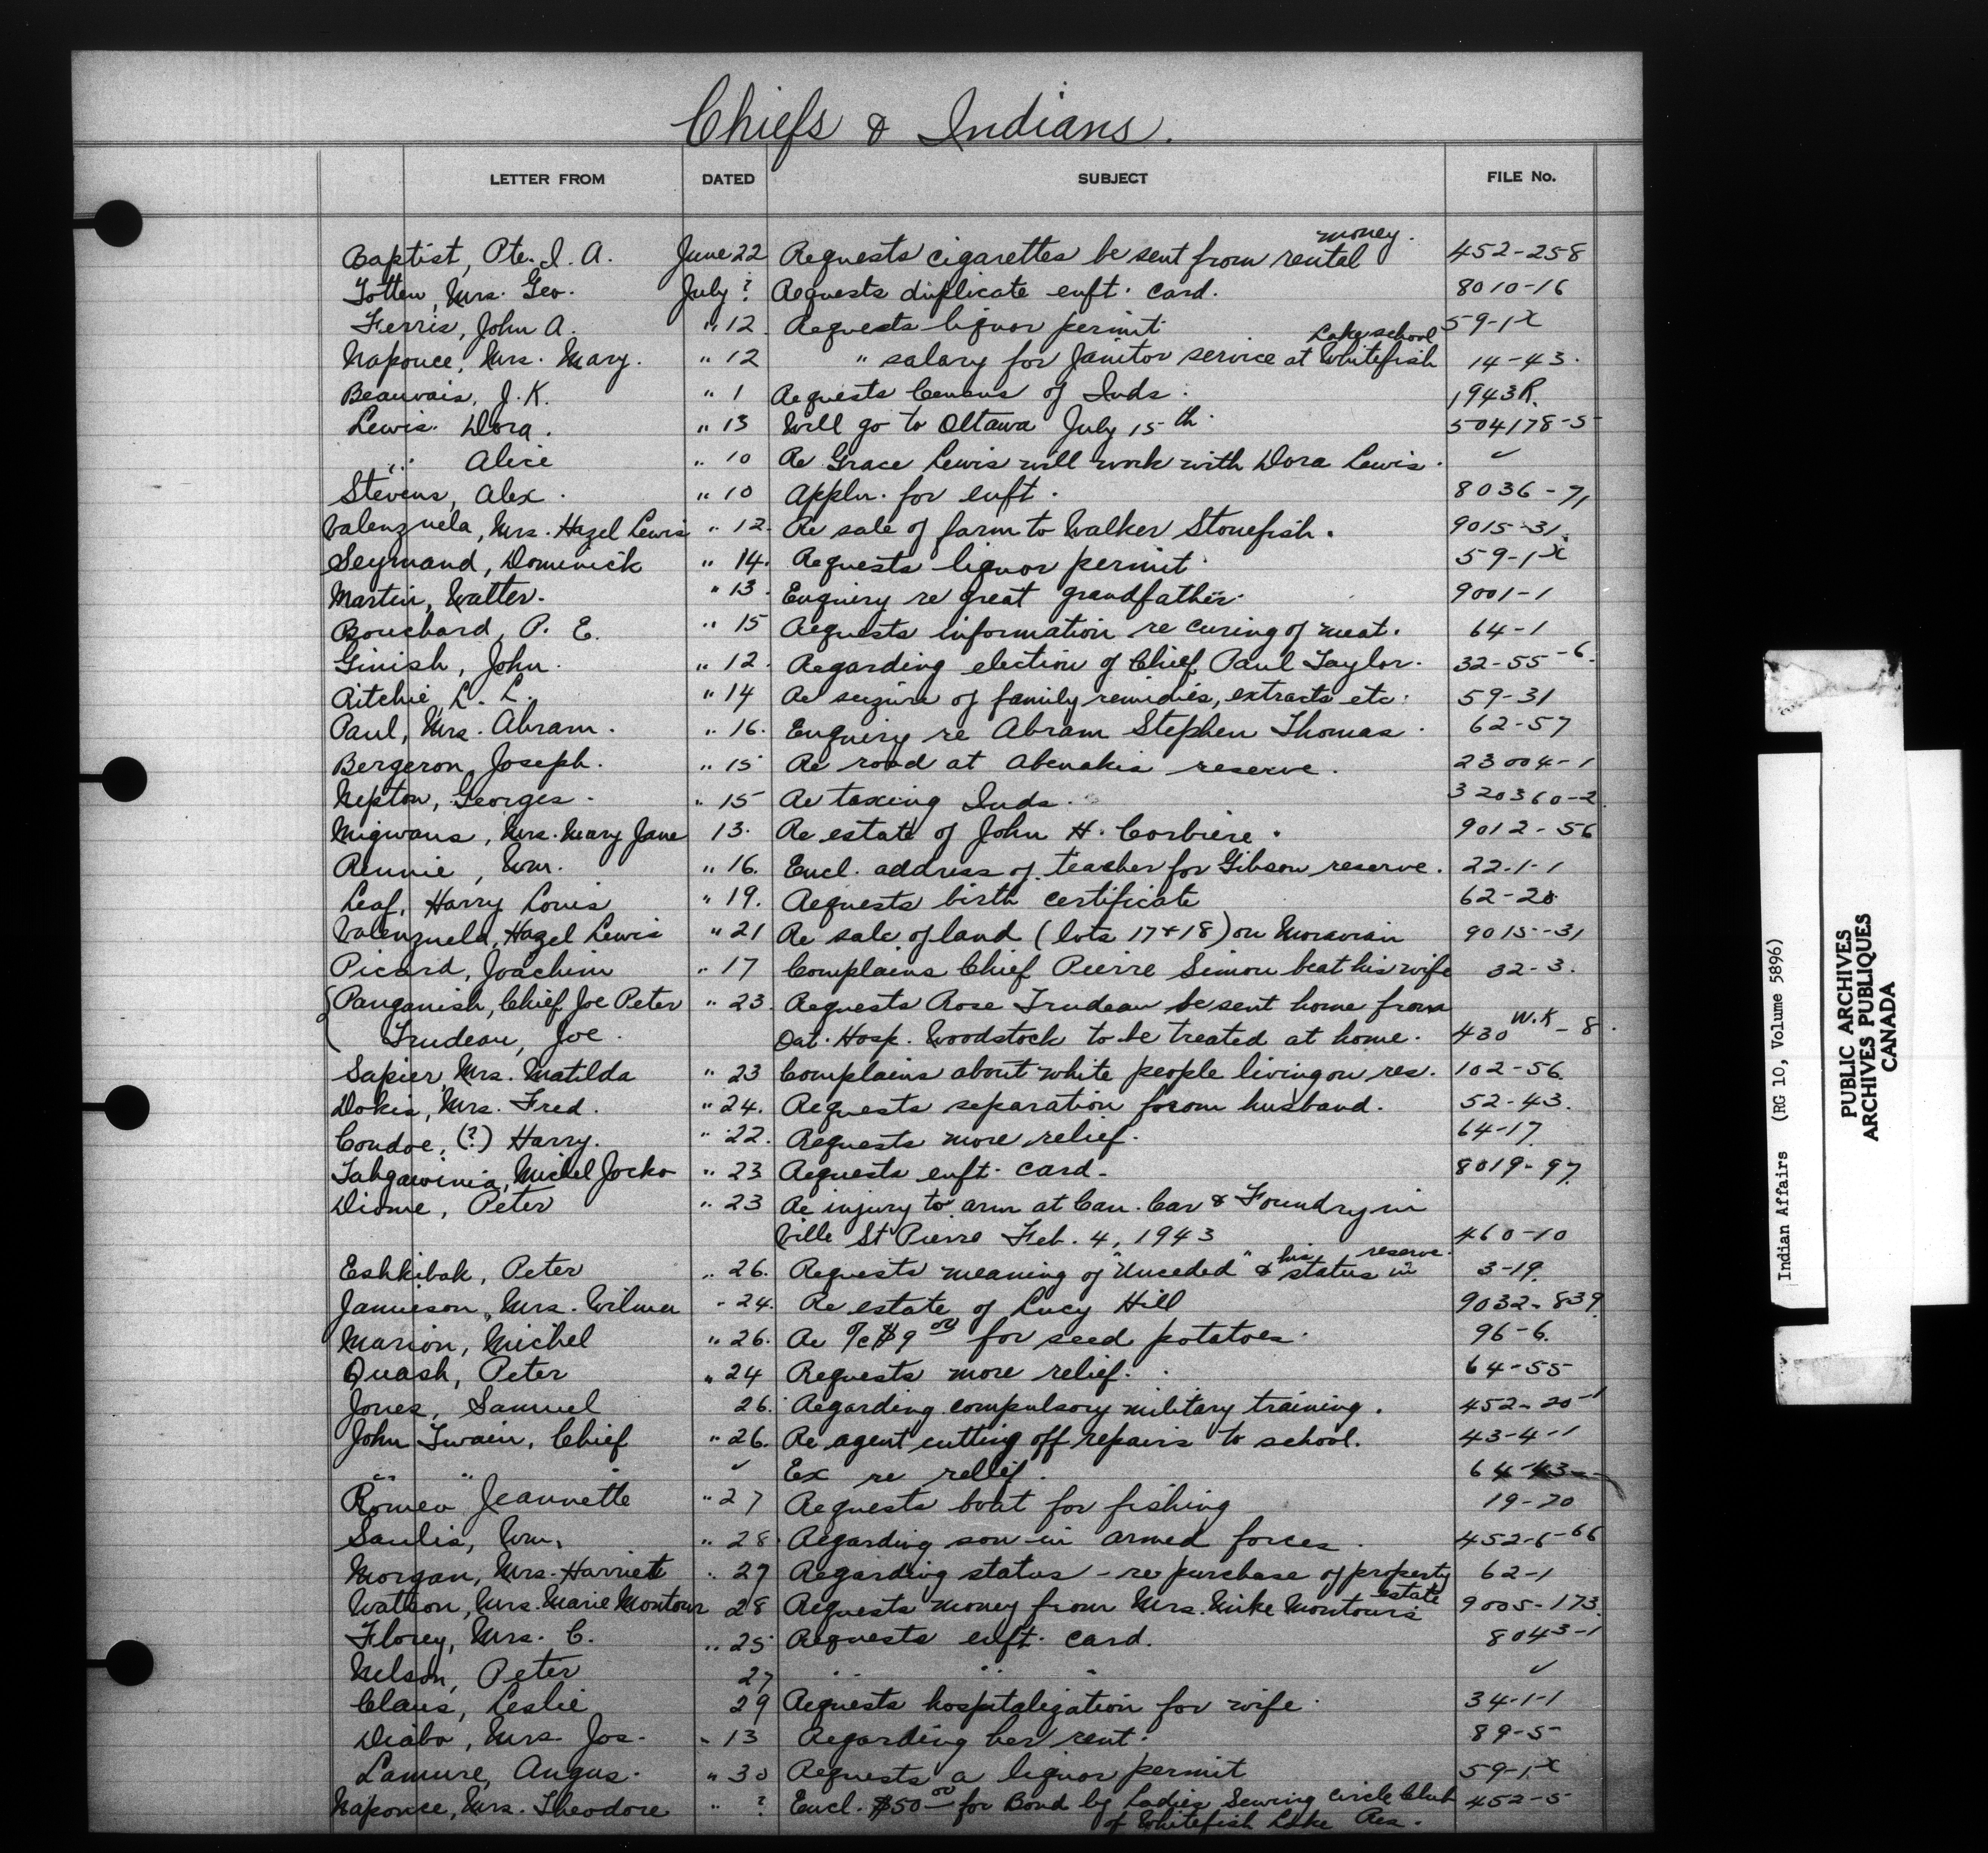 Chiefs & Indians.
LETTER FROM DATED SUBJECT FILE No.
Baptist, Pte. I. A. June 22 Requests cigarettes be sent from rental money. 452-258
Totten, Mrs. Geo. July ? Requests duplicate enft. card. 8010-16
Ferris, John A. " 12. Requests liquor permit 59-1x
Naponce, Mrs. Mary. " 12 " salary for Janitor service at Whitefish Lake school 14-43.
Beauvais, J. K. " 1 Requests Census of Inds. 1943R.
Lewis. Dora. " 13 Will go to Ottawa July 15th. 504178-5
" Alice " 10 Re Grace Lewis will work with Dora Lewis. ✓
Stevens, Alex. " 10 Appln. for enft. 8036-71
Valenzuela, Mrs. Hazel Lewis " 12. Re sale of farm to Walker Stonefish. 9015-31.
Seymand, Dominick " 14. Requests liquor permit. 59-1x
Martin, Walter. " 13. Enquiry re great grandfather. 9001-1
Bouchard, P. E. " 15 Requests information re curing of meat. 64-1
Ginish, John. " 12. Regarding election of Chief Paul Taylor. 32-55-6.
Ritchie, L. L. " 14 Re seizure of family remidies, extracts etc. 59-31
Paul, Mrs. Abram. " 16. Enquiry re Abram Stephen Thomas. 62-57
Bergeron, Joseph. " 15 Re road at Abenakis reserve. 23004-1
Nepton, Georges. " 15 Re taxing Inds. 320360-2.
Migwans, Mrs. Mary Jane 13. Re estate of John H. Corbiere. 9012-56
Rennie, Wm. " 16. Encl. address of teacher for Gibson reserve. 22-1-1
Leaf, Harry Louis " 19. Requests birth certificate 62-28
Valenzuela, Hazel Lewis " 21 Re sale of land (lots 17+18) on Moravian 9015-31
Picard, Joachim " 17 Complains Chief Pierre Simon beat his wife 32-3.
Panganish, Chief Joe Peter " 23. Requests Rose Trudeau be sent home from
Trudeau, Joe. Oat. Hosp. Woodstock to be treated at home. 430 W.K-8.
Sapier, Mrs. Matilda " 23 Complains about white people living on res. 102-56.
Dokis, Mrs. Fred. " 24. Requests separation forom husband. 52-43.
Condoe, (?) Harry. " 22. Requests more relief. 64-17.
Tahgawinia, Michel Jocko " 23 Requests enft. card. 8019-97.
Diome, Peter " 23 Re injury to arm at Can. Car & Foundry in
Ville St Pierre Feb. 4, 1943 460-10
Eshkibok, Peter " 26. Requests meaning of "Unceded" & his status in reserve. 3-19.
Jamieson, Mrs. Wilma " 24. Re estate of Lucy Hill 9032-839.
Marion, Michel " 26. Re a/c $9.00 for seed potatoes. 96-6.
Quash, Peter " 24 Requests more relief. 64-55
Jones, Samuel 26. Regarding compulsory military training. 452-20-1
John Twain, Chief " 26. Re agent cutting off repairs to school. 43-4-1
" " ✓ Ex re relief. 64-43
Romeo Jeannette " 27 Requests boat for fishing 19-20
Saulis, Wm, " 28. Regarding son in armed forces. 452-6-66
Morgan, Mrs. Harriett " 27 Regarding status - re purchase of property 62-1
Watson, Mrs. Marie Montour 28 Requests money from Mrs. Mike Montour's estate 9005-173.
Florey, Mrs. C. " 25 Requests enft. card. 8043-1
Nelson, Peter 27 " " " ✓
Claus, Leslie 29 Requests hospitalization for wife. 34-1-1
Diabo, Mrs. Jos. " 13 Regarding her rent. 89-5
Lamure, Angus. " 30 Requests a liquor permit 59-1x
Naponce, Mrs. Theodore " ? Encl. $50.00 for Bond by Ladies Sewing Circle Club 452-5
of Whitefish Lake Res.
Indian Affairs (RG 10, Volume 5896)
PUBLIC ARCHIVES
ARCHIVES PUBLIQUES
CANADA